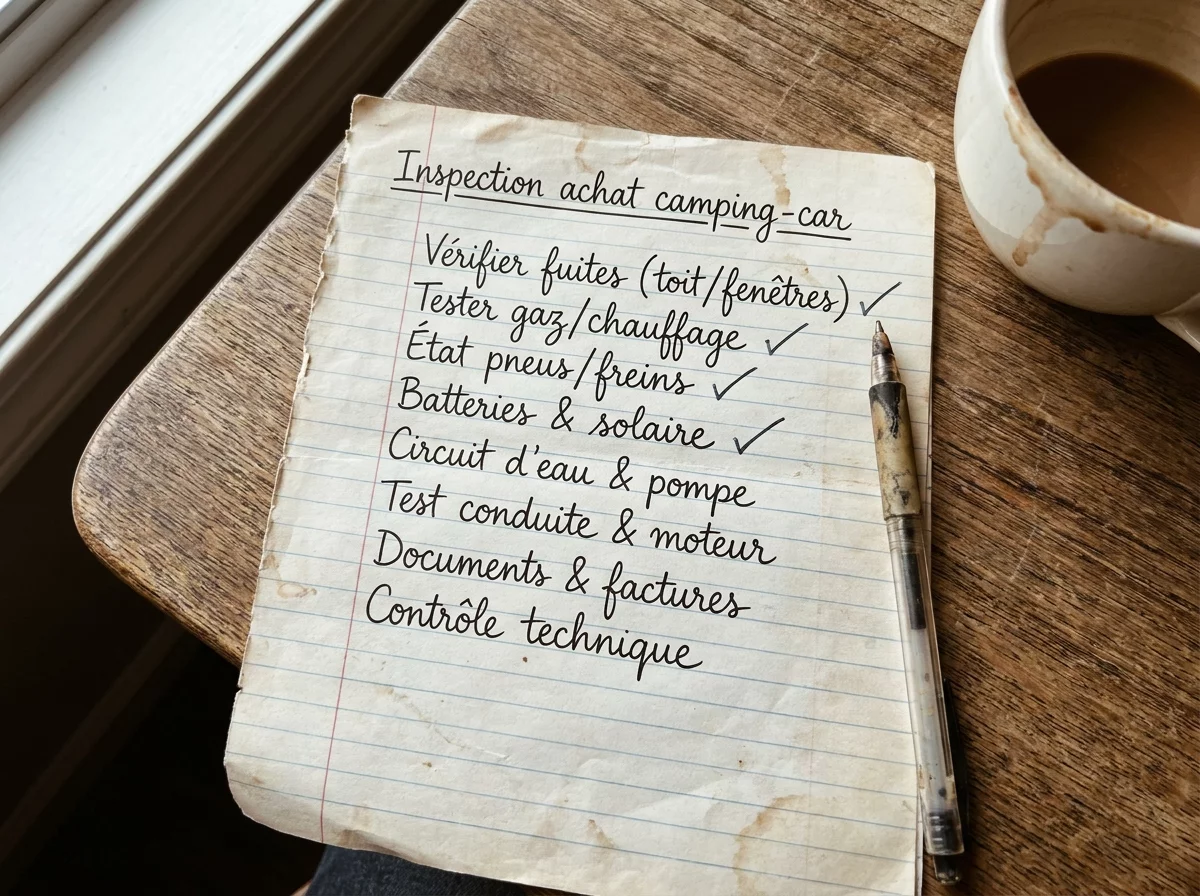 Inspection achat camping-car
Vérifier fuites (toit/fenêtres) ✓
Tester gaz/chauffage ✓
État pneus/freins ✓
Batteries & solaire ✓
Circuit d'eau & pompe
Test conduite & moteur
Documents & factures
Contrôle technique